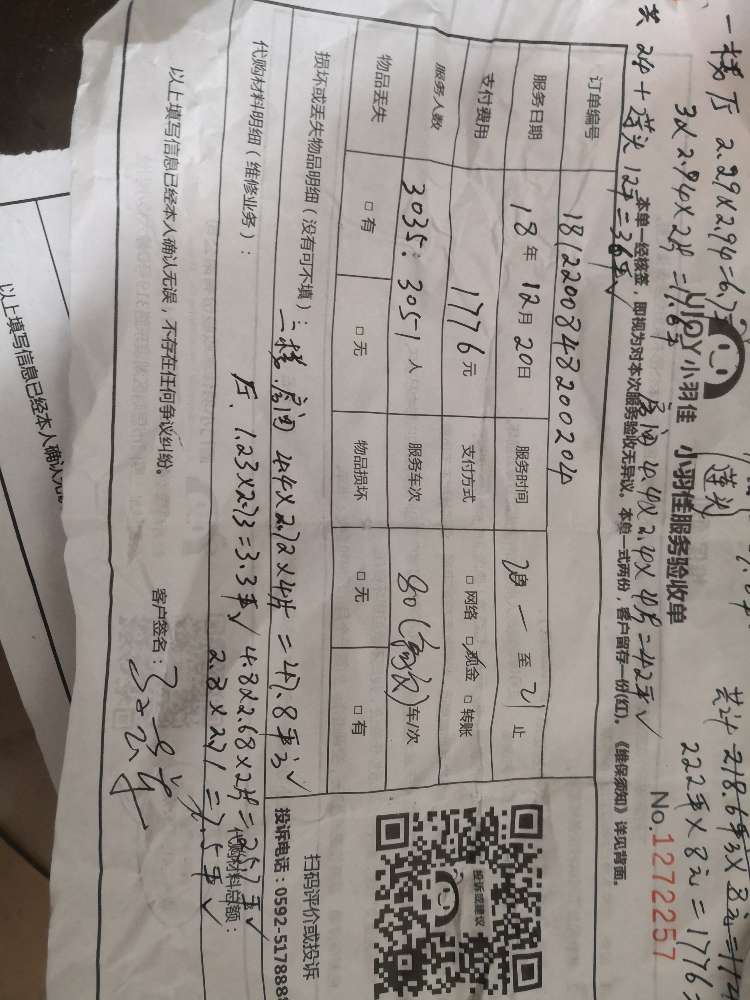 一楼厅 2.29×2.94=6.7
3×2.94×2片=17.6
共 24+莲头12平=36平√
莲头
房间 4.4×2.40×4片=42平√
共计 218.6平×8元=
222平×8元=1776
UIQY小羽佳 小羽佳服务验收单
No.1272257
本单一经核签,即视为对本次服务验收无异议。本单一式两份,客户留存一份(红)。《维保须知》详见背面。
订单编号 1812200848200204
服务日期 18年12月20日 服务时间 至 止
支付费用 1776元 支付方式 □网络 □现金 □转账
服务人数 3035:3051人 服务车次 80 车/次
物品丢失 □有 □无 物品损坏 □无 □有
损坏或丢失物品明细(没有可不填):
二楼.房间 4.4×2.72×4片=47.8平√
代购材料明细(维修业务):
厅.1.23×2.73=3.3平√ 4.8×2.68×2片=25.7平√
2.8×2.71=7.5平√
代购材料总额:
以上填写信息已经本人确认无误,不存在任何争议纠纷。
客户签名:
扫码评价或投诉
投诉电话:0592-5178889
投诉或建议
以上填写信息已经本人确认无误